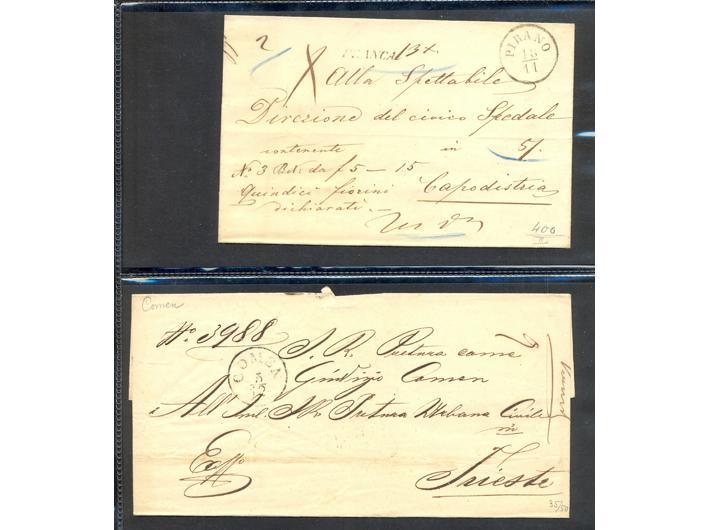 2
FRANCA 13x
PIRANO
18
11
Alla Spettabile
Direzione del civico Spedale
contenente in 5/.
No. 3 Bd. da f 5 – 15
Quindici fiorini Capodistria
dichiarati.
400
Comen
No. 3988
COMEN
5
I. R. Pretura come
Giudizio Comen
All' Inl. I.R. Pretura Urbana Civile
in
Exoffo
Trieste
35/50